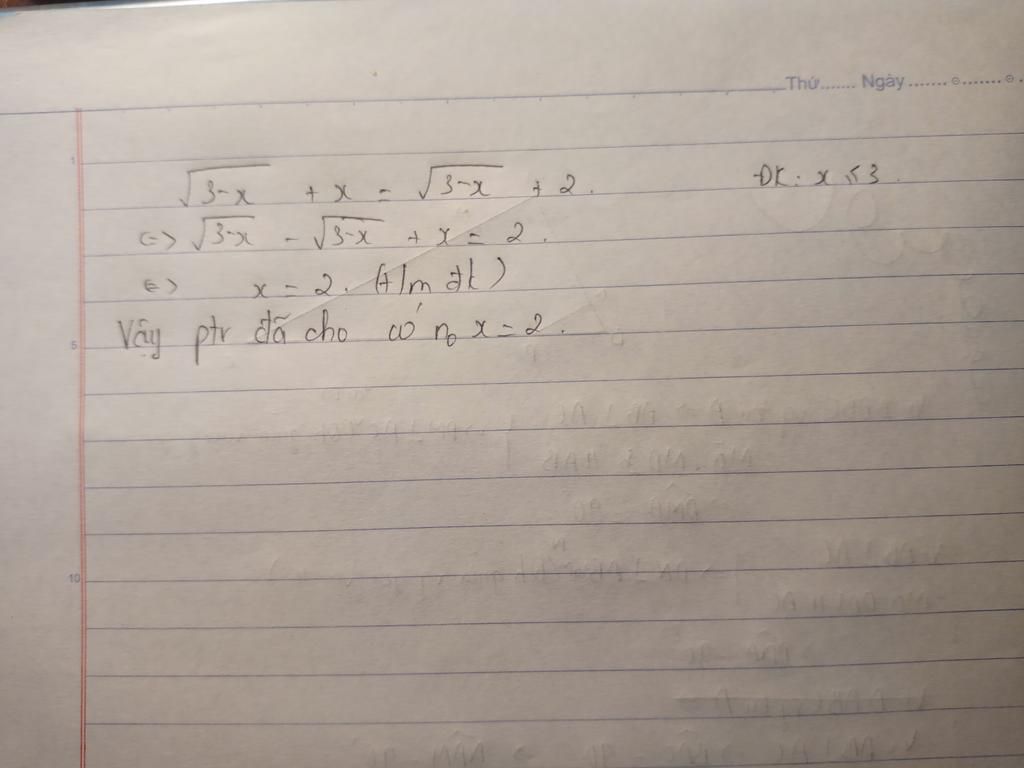 Thứ....... Ngày ....... ๏ ....... ๏ .
√(3-x) + x = √(3-x) + 2. ĐK: x ≤ 3.
<=> √(3-x) - √(3-x) + x = 2.
<=> x = 2. (t/m đk)
Vậy ptr đã cho có no x = 2.
1
5
10